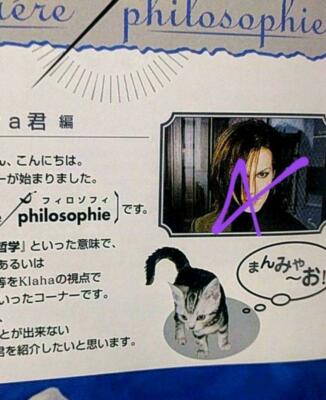 ière philosophie
a君 編
ん、こんにちは。
ーが始まりました。
フィロソフィ
philosophie〕です。
哲学』といった意味で、
あるいは
等をKlahaの視点で
いったコーナーです。
、
とが出来ない
君を紹介したいと思います。
まんみゃ
〜お!